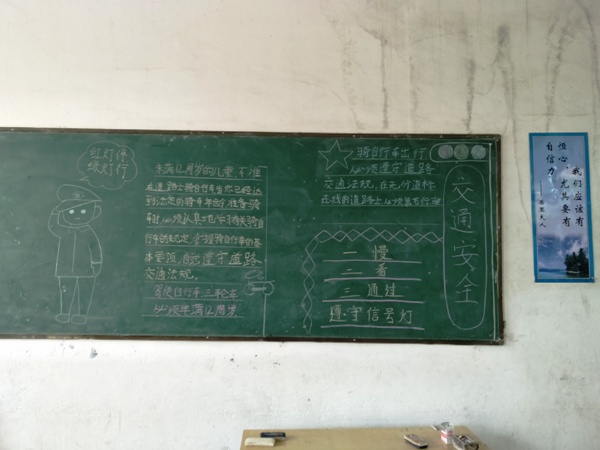 红灯停
绿灯行
未满12周岁的儿童,不准
在道路上骑自行车当你已经达
到法定的骑车年龄,准备骑
车时,必须认真地学习有关骑自
行车的规定,掌握骑自行车的基
本要领,自觉遵守道路
交通法规。
驾驶自行车三轮车
必须年满12周岁
骑自行车出行
必须遵守道路
交通法规,在无分道标
线的道路上必须靠右行驶
一 慢
二 看
三 通过
遵守信号灯
交通安全
我们应该有
恒心,尤其要有
自信力!
——居里夫人